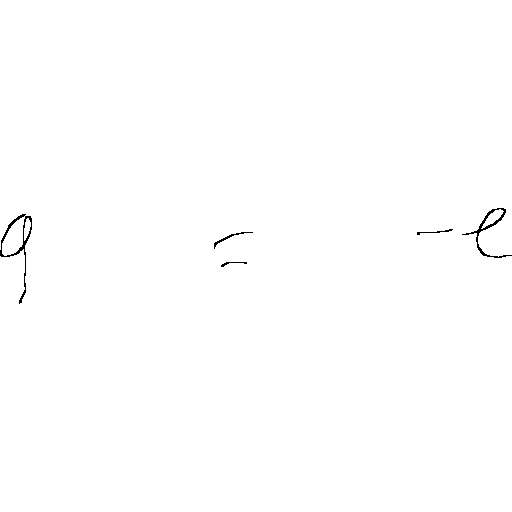 q = -e